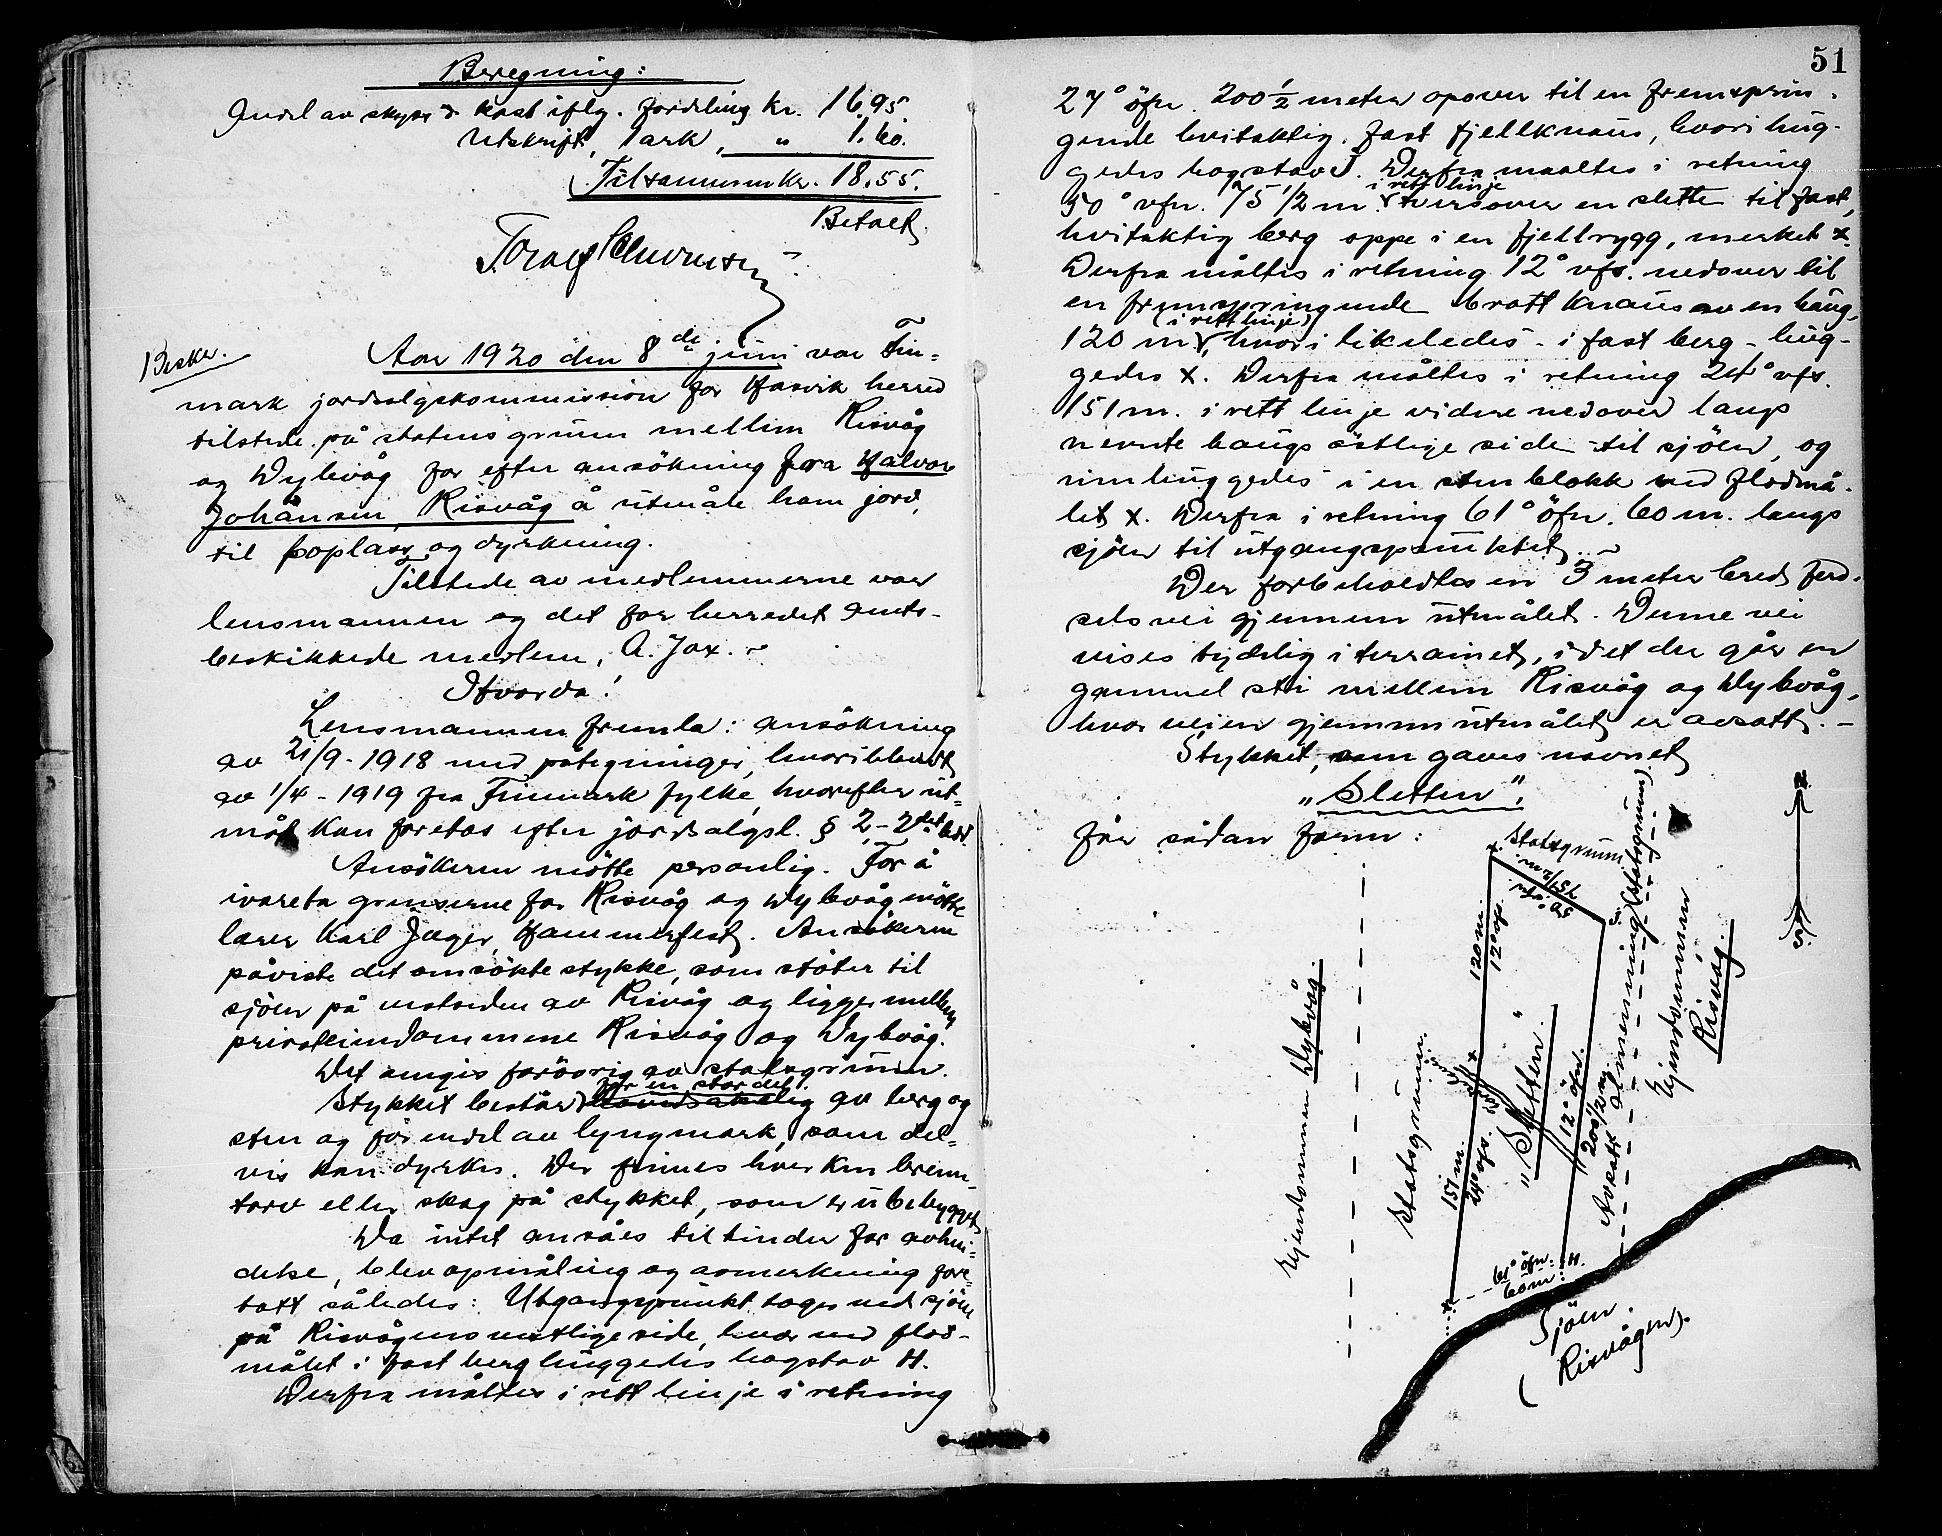 Beregning:
Andel av skyss & kost iflg. fordeling kr. 16.95
Utskrift, 1 ark, " 1.60.
Tilsammen kr. 18.55.
Betalt
Beskr.
Aar 1920 den 8de juni var Fin=
mark jordsalgskommission for Hasvik herred
tilstede på statens grunn mellem Risvåg
og Dybvåg for efter ansökning fra Halvor
Johansen, Risvåg å utmåle ham jord,
til boplass og dyrkning.
Tilstede av medlemmerne var
lensmannen og det for herredet amts-
beskikkede medlem, A. Jox.
Hvorda!
Lensmannen fremla: ansökning
av 21/9-1918 med påtegninger, hvoriblandt
av 1/4-1919 fra Finmark fylke, hvorefter ut=
mål kan foretas efter jordsalgsl. § 2-2det ledd
Ansökeren mötte personlig. For å
ivareta grenserne for Risvåg og Dybvåg mötte
lærer Karl Jæger, Hammerfest. Ansökeren
påviste det ansökte stykke, som stöter til
sjöen på vestsiden av Risvåg og ligger mellem
privateiendommene Risvåg og Dybvåg.
Det omgis forövrig av statsgrunn.
for en stor del
Stykket består hovedsakelig av berg og
sten og for endel av lyngmark, som del=
vis kan dyrkes. Der finnes hverken brenn-
torv eller skog på stykket, som er ubebygget
Da intet ansåes til hinder for avhen=
delse, blev opmåling og avmerkning fore-
tatt således: Utgangspunkt toges ved sjöen
på Risvågens vestlige side, hvor ved flod-
målet i fast berg huggedes bogstav H.
Derfra måltes i rett linje i retning
51
27° öfn. 200 ½ meter opover til en fremsprin-
gende hvitaktig, fast fjellknaus, hvori hug-
gedes bogstav J. Derfra maaltes i retning
i rett linje
50° vfn. 75 1/2 m tversover en slette til fast,
hvitaktig berg oppe i en fjellrygg, merket x.
Derfra måltes i retning 12° vfs. nedover til
en fremspringende bratt knaus av en haug,
(i rett linje)
120 m, hvori likeledes - i fast berg - hug-
gedes x. Derfra måltes i retning 24° vfs.
151 m. i rett linje videre nedover langs
nevnte haugs östlige side til sjöen, og
innhuggedes i en stenblokk ved flodmå-
let x. Derfra i retning 61° öfn. 60 m. langs
sjöen til utgangspunktet.
Der forbeholdtes en 3 meter bred ferd-
selsvei gjennem utmålet. Denne vei
vises tydelig i terrainet, idet der går en
gammel sti mellem Risvåg og Dybvåg,
hvor veien gjennem utmålet er avsatt.
Stykket, som gaves navnet
"Sletten",
får sådan form:
N.
S.
Statsgrunn
75 1/2 m.
50° vfn.
120 m.
12° vfs.
Eiendommen Dybvåg.
Statsgrunn.
151 m.
24° vfs.
"Sletten."
200 1/2 m.
Avsatt almenning (statsgrunn)
Eiendommen
Risvåg.
61° öfn.
60 m.
H.
Sjöen.
(Risvågen).